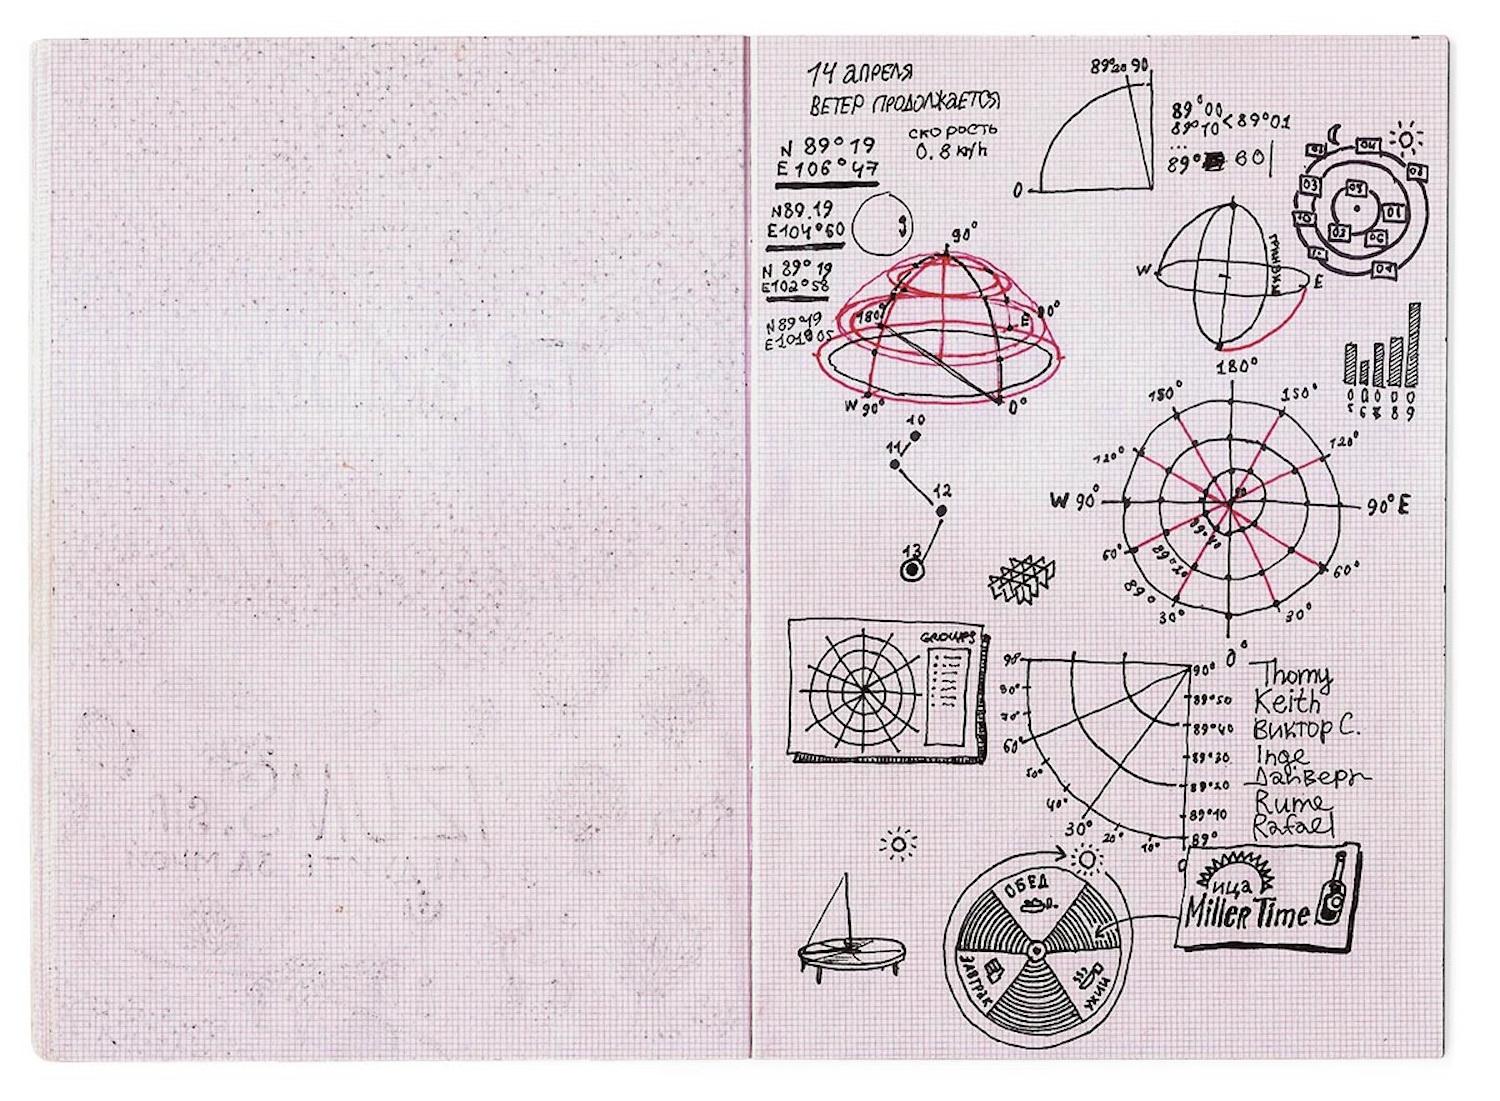 14 апреля
ветер продолжается
скорость
0.8 km/h
N 89°19
E 106°47
N89.19
E104°60
N 89°19
E102°58
N89°19
89°20 90
0
89°00
89°10 < 89°01
89° 60
90°
180°
90°
E
W 90°
0°
W
Гринвич
E
03
04
08
03
09
01
10
03
5 6 7 8 9
180°
150° 150°
120° 120°
W 90° 90° E
60° 60°
30° 30°
0°
89°40
89°20
89°
10
11
12
13
GROUPS
90
80°
70°
60°
50°
40°
30°
20°
10°
0
90°
89°50
89°40
89°30
89°20
89°10
89°
Thomy
Keith
Виктор С.
Inge
Rune
Rafael
обед
завтрак
ужин
ица
Miller Time